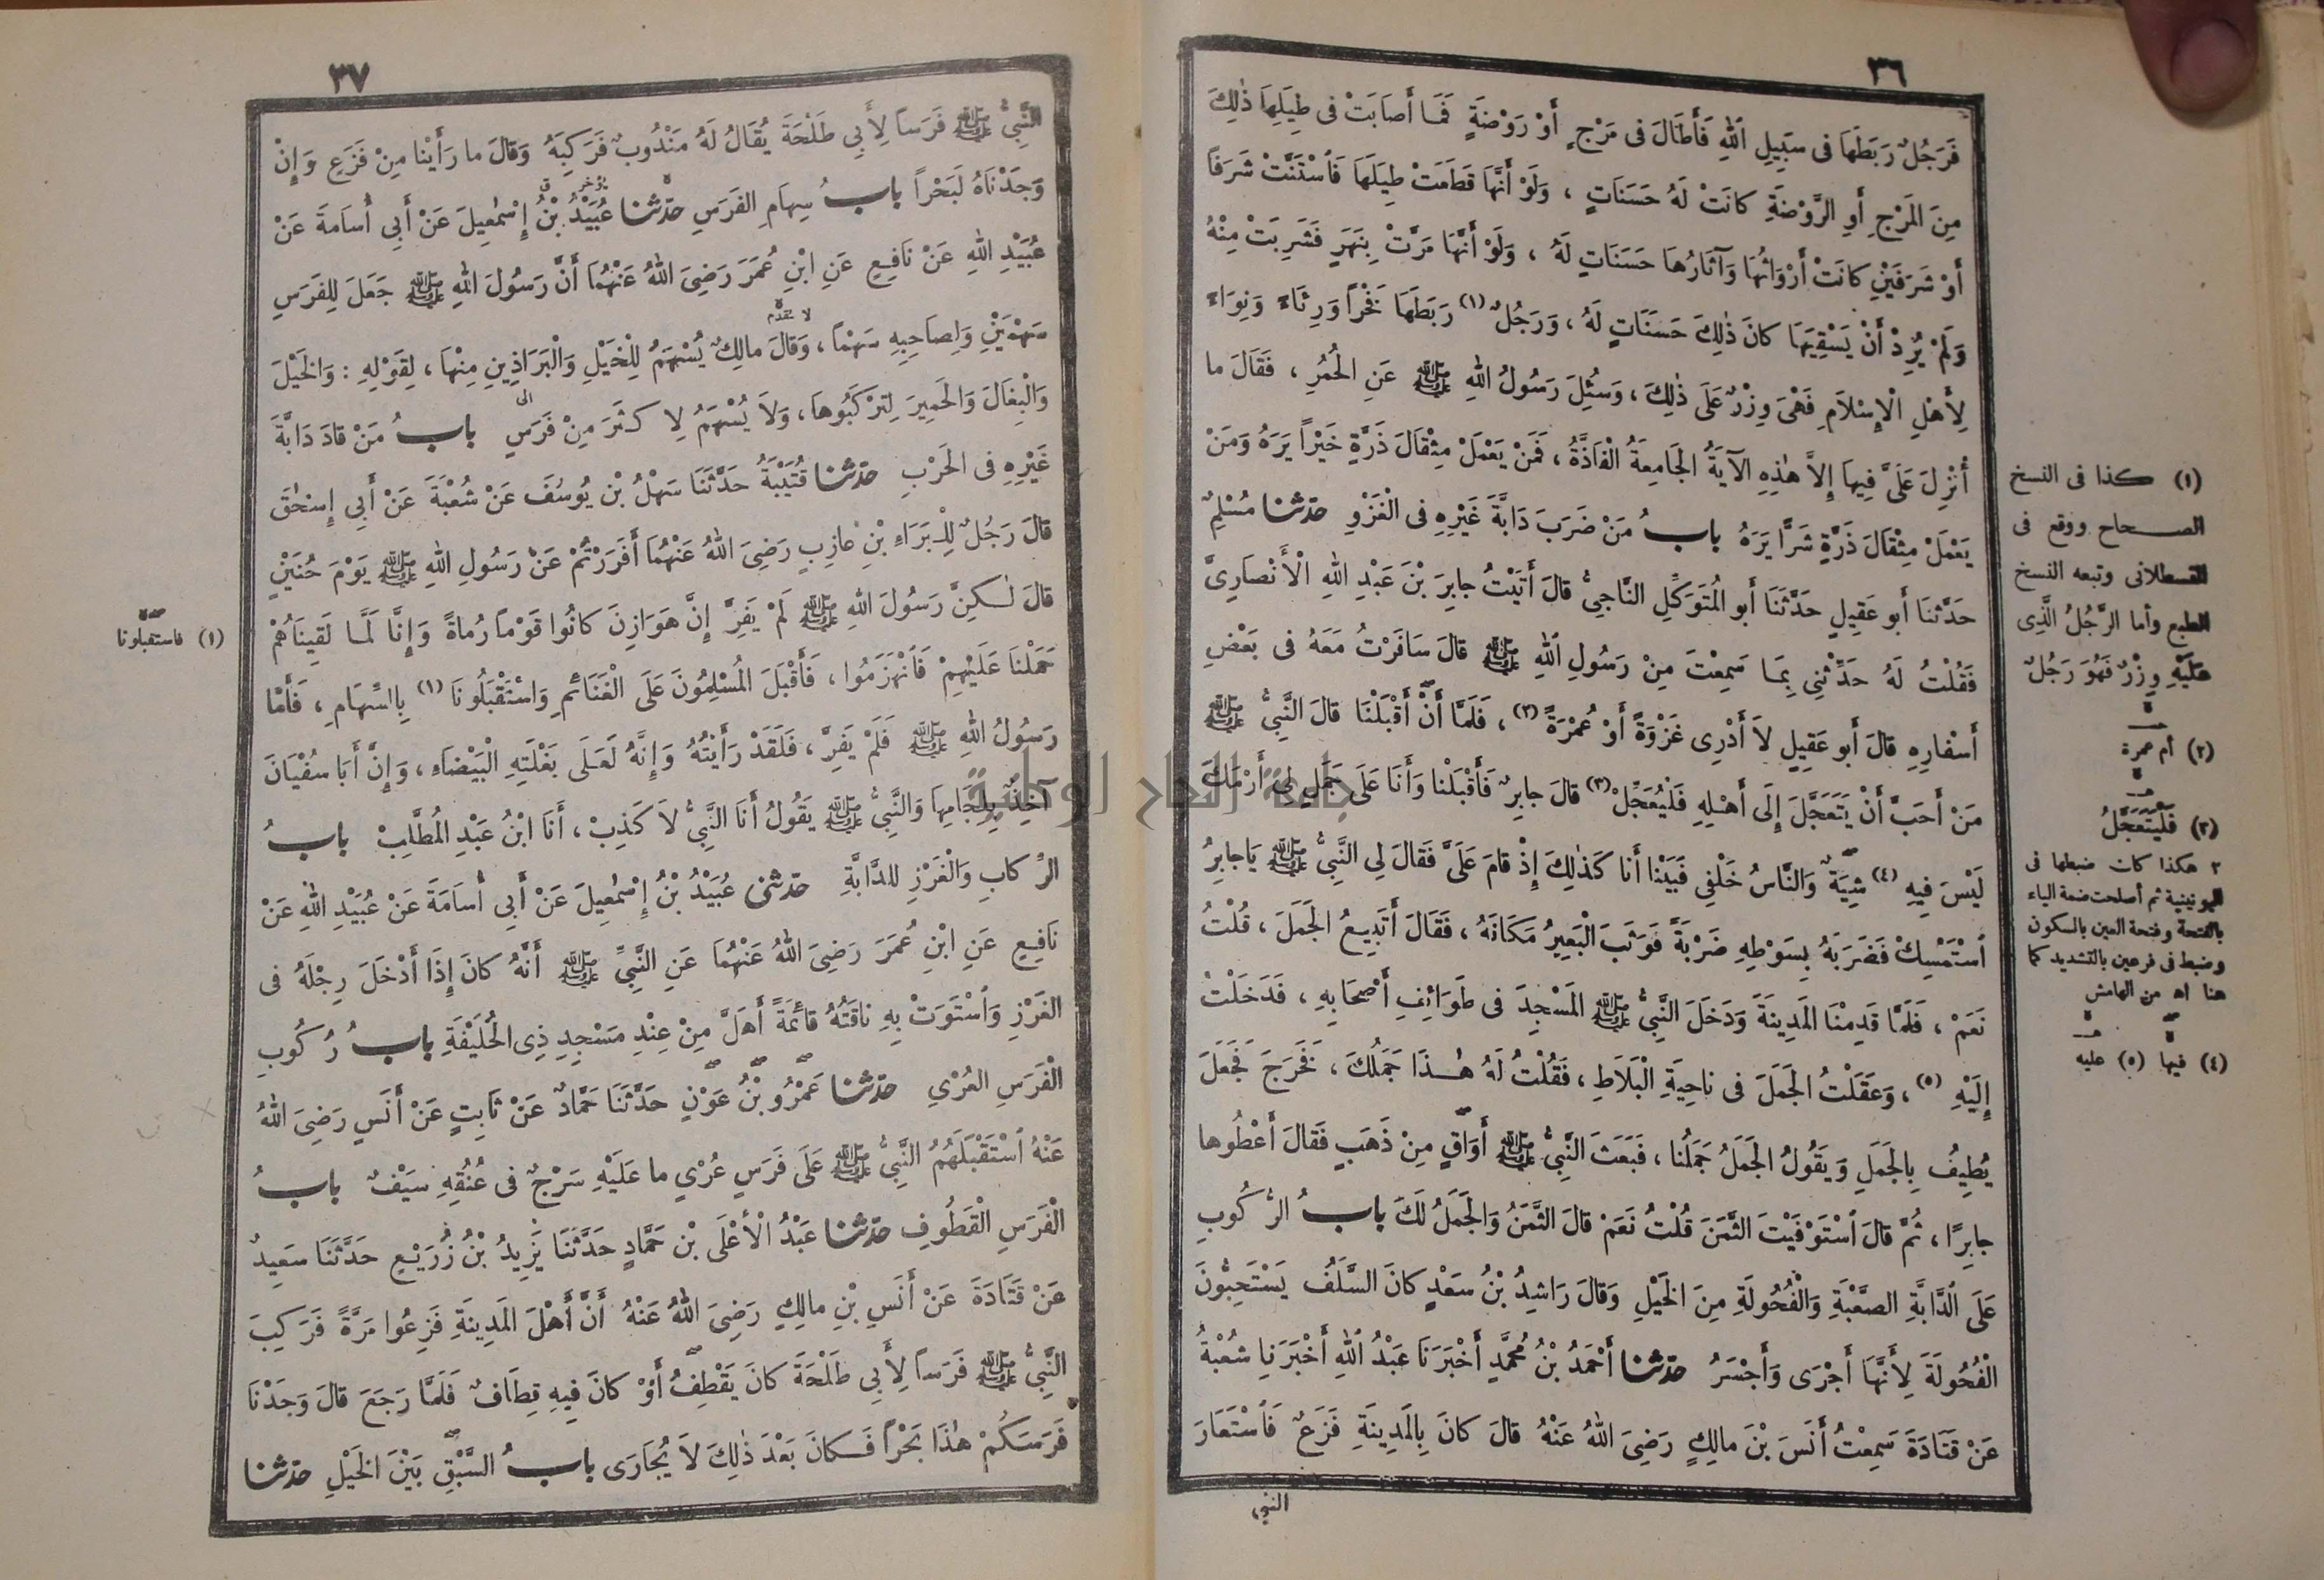 ٣٦
فَرَجُلٌ رَبَطَهَا فى سَبِيلِ اللهِ فَأَطَالَ فى مَرْجٍ أَوْ رَوْضَةٍ فَمَا أَصَابَتْ فى طِيَلِهَا ذٰلِكَ
مِنَ المَرْجِ أَوِ الرَّوْضَةِ كانَتْ لَهُ حَسَنَاتٍ ، وَلَوْ أَنَّهَا قَطَعَتْ طِيَلَهَا فَاسْتَنَّتْ شَرَفًا
أَوْ شَرَفَيْنِ كانَتْ أَرْوَاثُهَا وَآثَارُهَا حَسَنَاتٍ لَهُ ، وَلَوْ أَنَّهَا مَرَّتْ بِنَهَرٍ فَشَرِبَتْ مِنْهُ
وَلَمْ يُرِدْ أَنْ يَسْقِيَهَا كانَ ذٰلِكَ حَسَنَاتٍ لَهُ ، وَرَجُلٌ (١) رَبَطَهَا فَخْرًا وَرِئَاءً وَنِوَاءً
لِأَهْلِ الْإِسْلاَمِ فَهْىَ وِزْرٌ عَلَى ذٰلِكَ ، وَسُئِلَ رَسُولُ اللهِ ﷺ عَنِ الحُمُرِ ، فَقَالَ ما
أُنْزِلَ عَلَىَّ فِيهَا إِلاَّ هٰذِهِ الآيَةُ الجَامِعَةُ الْفَاذَّةُ ، فَمَنْ يَعْمَلْ مِثْقَالَ ذَرَّةٍ خَيْرًا يَرَهُ وَمَنْ
يَعْمَلْ مِثْقَالَ ذَرَّةٍ شَرًّا يَرَهُ باب مَنْ ضَرَبَ دَابَّةَ غَيْرِهِ فى الْغَزْوِ حدّثنا مُسْلِمٌ
حَدَّثَنَا أَبو عَقِيلٍ حَدَّثَنَا أَبو المُتَوَكِّلِ النَّاجِىُّ قالَ أَتَيْتُ جابِرَ بْنَ عَبْدِ اللهِ الْأَنْصَارِىَّ
فَقُلْتُ لَهُ حَدِّثْنِى بِمَا سَمِعْتَ مِنْ رَسُولِ اللهِ ﷺ قالَ سَافَرْتُ مَعَهُ فى بَعْضِ
أَسْفارِهِ قالَ أَبو عَقِيلٍ لاَ أَدْرِى غَزْوَةً أَوْ عُمْرَةً (٢) ، فَلَمَّا أَنْ أَقْبَلْنَا قالَ النَّبِىُّ ﷺ
مَنْ أَحَبَّ أَنْ يَتَعَجَّلَ إِلَى أَهْلِهِ فَلْيُعَجِّلْ (٣) قالَ جابِرٌ فَأَقْبَلْنا وَأَنَا عَلَى جَمَلٍ لِى أَرْمَكَ
لَيْسَ فِيهِ (٤) شِيَةٌ وَالنَّاسُ خَلْفِى فَبَيْنَا أَنا كَذٰلِكَ إِذْ قامَ عَلَىَّ فَقالَ لِى النَّبِىُّ ﷺ يَاجابِرُ
اسْتَمْسِكْ فَضَرَبَهُ بِسَوْطِهِ ضَرْبَةً فَوَثَبَ الْبَعِيرُ مَكَانَهُ ، فَقَالَ أَتَبِيعُ الجَمَلَ ، قُلْتُ
نَعَمْ ، فَلَمَّا قَدِمْنَا المَدِينَةَ وَدَخَلَ النَّبِىُّ ﷺ المَسْجِدَ فى طَوَائِفِ أَصْحَابِهِ ، فَدَخَلْتُ
إِلَيْهِ (٥) ، وَعَقَلْتُ الجَمَلَ فى ناحِيَةِ الْبَلاَطِ ، فَقُلْتُ لَهُ هٰذَا جَمَلُكَ ، فَخَرَجَ فَجَعَلَ
يُطِيفُ بِالجَمَلِ وَيَقُولُ الجَمَلُ جَمَلُنا ، فَبَعَثَ النَّبِىُّ ﷺ أَوَاقٍ مِنْ ذَهَبٍ فَقالَ أَعْطُوها
جابِرًا ، ثُمَّ قالَ اسْتَوْفَيْتَ الثَّمَنَ قُلْتُ نَعَمْ قالَ الثَّمَنُ وَالجَمَلُ لَكَ باب الرُّكُوبِ
عَلَى الدَّابَّةِ الصَّعْبَةِ وَالْفُحُولَةِ مِنَ الخَيْلِ وَقالَ رَاشِدُ بْنُ سَعْدٍ كانَ السَّلَفُ يَسْتَحِبُّونَ
الْفُحُولَةَ لِأَنَّهَا أَجْرَى وَأَجْسَرُ حدّثنا أَحْمَدُ بْنُ مُحَمَّدٍ أَخْبَرَنَا عَبْدُ اللهِ أَخْبَرَنا شُعْبَةُ
عَنْ قَتَادَةَ سَمِعْتُ أَنَسَ بْنَ مالِكٍ رَضِىَ اللهُ عَنْهُ قالَ كانَ بِالمَدِينَةِ فَزَعٌ فَاسْتَعَارَ
النبى
(١) كذا فى النسخ
الصحاح ووقع فى
القسطلانى وتبعه النسخ
الطبع وأما الرَّجُلُ الَّذِى
عَلَيْهِ وِزْرٌ فَهُوَ رَجُلٌ
(٢) أم عمرة
(٣) فَلْيَتَعَجَّلْ
٣ هكذا كان ضبطها فى
اليونينية ثم أصلحت ضمة الياء
بالفتحة وفتحة العين بالسكون
وضبط فى فرعين بالتشديد كما
هنا اه من الهامش
(٤) فيها (٥) عليه
٣٧
النَّبِىُّ ﷺ فَرَسًا لِأَبِى طَلْحَةَ يُقَالُ لَهُ مَنْدُوبٌ فَرَكِبَهُ وَقالَ ما رَأَيْنا مِنْ فَزَعٍ وَإِنْ
وَجَدْنَاهُ لَبَحْراً باب سِهَامِ الفَرَسِ حدّثنا عُبَيْدُ بْنُ إِسْمٰعِيلَ عَنْ أَبِى أُسَامَةَ عَنْ
عُبَيْدِ اللهِ عَنْ نَافِعٍ عَنِ ابْنِ عُمَرَ رَضِىَ اللهُ عَنْهُمَا أَنَّ رَسُولَ اللهِ ﷺ جَعَلَ لِلفَرَسِ
سَهْمَيْنِ وَلِصَاحِبِهِ سَهْمًا ، وَقالَ مالِكٌ يُسْهَمُ لِلْخَيْلِ وَالْبَرَاذِينِ مِنْهَا ، لِقَوْلِهِ : وَالخَيْلَ
وَالْبِغَالَ وَالحَمِيرَ لِتَرْكَبُوها ، وَلاَ يُسْهَمُ لِاكثَرَ مِنْ فَرَسٍ باب مَنْ قادَ دَابَّةَ
غَيْرِهِ فى الحَرْبِ حدّثنا قُتَيْبَةُ حَدَّثَنَا سَهْلُ بْن يُوسُفَ عَنْ شُعْبَةَ عَنْ أَبِى إِسْحٰقَ
قالَ رَجُلٌ لِلْبَرَاءِ بْنِ عازِبٍ رَضِىَ اللهُ عَنْهُمَا أَفَرَرْتُمْ عَنْ رَسُولِ اللهِ ﷺ يَوْمَ حُنَيْنٍ
قالَ لٰكِنَّ رَسُولَ اللهِ ﷺ لَمْ يَفِرَّ إِنَّ هَوَازِنَ كانُوا قَوْمًا رُماةً وَإِنَّا لَمَّا لَقِينَاهُمْ
حَمَلْنَا عَلَيْهِمْ فَانْهَزَمُوا ، فَأَقْبَلَ المُسْلِمُونَ عَلَى الْغَنَائمِ وَاسْتَقْبَلُونَا (١) بِالسِّهَامِ ، فَأَمَّا
رَسُولُ اللهِ ﷺ فَلَمْ يَفِرَّ ، فَلَقَدْ رَأَيْتُهُ وَإِنَّهُ لَعَلَى بَغْلَتِهِ الْبَيْضَاءِ ، وَإِنَّ أَبَا سُفْيَانَ
آخِذٌ بِلِجَامِهَا وَالنَّبِىُّ ﷺ يَقُولُ أَنَا النَّبِىُّ لاَ كَذِبْ ، أَنَا ابْنُ عَبْدِ المُطَّلِبْ باب
الرِّكابِ وَالْغَرْزِ للدَّابَّةِ حدّثنى عُبَيْدُ بْنُ إِسْمٰعِيلَ عَنْ أَبِى أُسَامَةَ عَنْ عُبَيْدِ اللهِ عَنْ
نَافِعٍ عَنِ ابْنِ عُمَرَ رَضِىَ اللهُ عَنْهُمَا عَنِ النَّبِىِّ ﷺ أَنَّهُ كانَ إِذَا أَدْخَلَ رِجْلَهُ فى
الغَرْزِ وَاسْتَوَتْ بِهِ ناقَتُهُ قائِمَةً أَهَلَّ مِنْ عِنْدِ مَسْجِدِ ذِى الحُلَيْفَةِ باب رُكُوبِ
الْفَرَسِ العُرْىِ حدّثنا عَمْرُو بْنُ عَوْنٍ حَدَّثَنَا حَمَّادٌ عَنْ ثَابِتٍ عَنْ أَنَسٍ رَضِىَ اللهُ
عَنْهُ اسْتَقْبَلَهُمُ النَّبِىُّ ﷺ عَلَى فَرَسٍ عُرْىٍ ما عَلَيْهِ سَرْجٌ فى عُنُقِهِ سَيْفٌ باب
الْفَرَسِ الْقَطُوفِ حدّثنا عَبْدُ الْأَعْلَى بْن حَمَّادٍ حَدَّثَنَا يَزِيدُ بْنُ زُرَيْعٍ حَدَّثَنَا سَعِيدٌ
عَنْ قَتَادَةَ عَنْ أَنَسِ بْنِ مالِكٍ رَضِىَ اللهُ عَنْهُ أَنَّ أَهْلَ المَدِينَةِ فَزِعُوا مَرَّةً فَرَكِبَ
النَّبِىُّ ﷺ فَرَسًا لِأَبِى طَلْحَةَ كانَ يَقْطِفُ أَوْ كانَ فِيهِ قِطَافٌ فَلَمَّا رَجَعَ قالَ وَجَدْنَا
فَرَسَكُمْ هٰذَا بَحْرًا فَكانَ بَعْدَ ذٰلِكَ لاَ يُجَارَى باب السَّبْقِ بَيْنَ الخَيْلِ حدّثنا
(١) فاستقبلونا